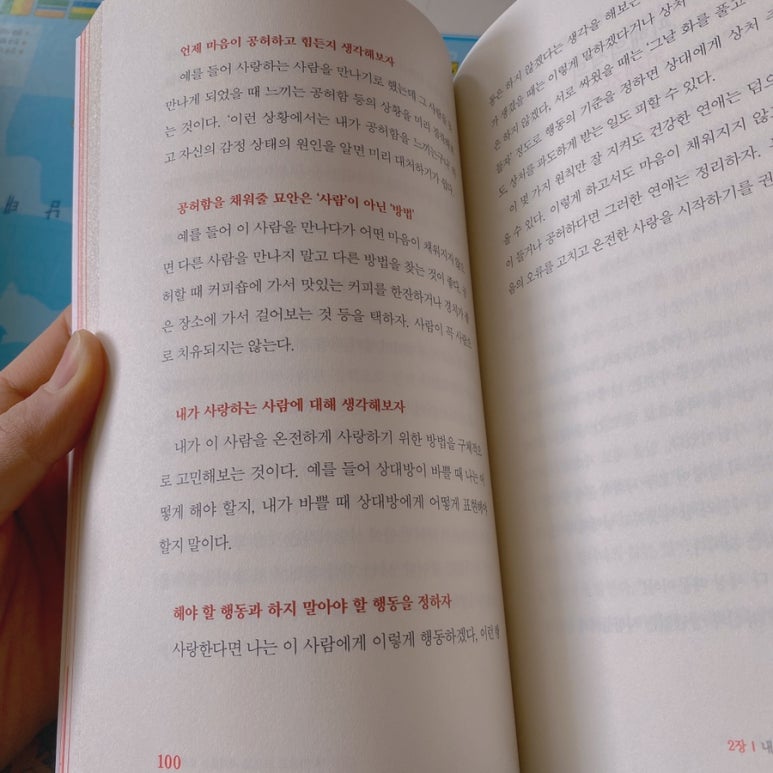 언제 마음이 공허하고 힘든지 생각해보자
예를 들어 사랑하는 사람을 만나기로 했는데 그 사람을 못
만나게 되었을 때 느끼는 공허함 등의 상황을 미리
는 것이다. '이런 상황에서는 내가 공허함을
고 자신의 감정 상태의 원인을 알면 미리 대처하기가 쉽다.
공허함을 채워줄 묘안은 '사람'이 아닌 '방법'
예를 들어 이 사람을 만나다가 어떤 마음이
면 다른 사람을 만나지 말고 다른 방법을 찾는 것이 좋다. 공
허할 때 커피숍에 가서 맛있는 커피를 한잔하거나 경치가 좋
은 장소에 가서 걸어보는 것 등을 택하자. 사람이 꼭 사람으
로 치유되지는 않는다.
내가 사랑하는 사람에 대해 생각해보자
내가 이 사람을 온전하게 사랑하기 위한 방법을 구체적으
로 고민해보는 것이다. 예를 들어 상대방이 바쁠 때 나는 어
떻게 해야 할지, 내가 바쁠 때 상대방에게 어떻게 표현해야
할지 말이다.
해야 할 행동과 하지 말아야 할 행동을 정하자
사랑한다면 나는 이 사람에게 이렇게 행동하겠다, 이런 행
100
동은 하지 않겠다는 생각을 해보는
가 생겼을 때는 이렇게 말하겠다거나 상처
은 하지 않겠다, 서로 싸웠을 때는 '그날 화를 풀고
들자' 정도로 행동의 기준을 정하면 상대에게 상처 주
도, 상처를 과도하게 받는 일도 피할 수 있다.
이 몇 가지 원칙만 잘 지켜도 건강한 연애는 덤으
을 수 있다. 이렇게 하고서도 마음이 채워지지 않
이 들거나 공허하다면 그러한 연애는 정리하자.
음의 오류를 고치고 온전한 사랑을 시작하기를 권
2장 | 내